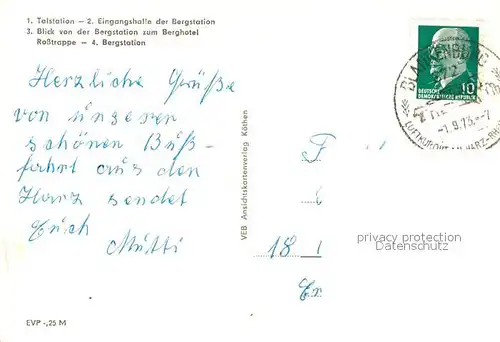 1. Talstation – 2. Eingangshalle der Bergstation
3. Blick von der Bergstation zum Berghotel
Roßtrappe – 4. Bergstation
Herzliche Grüße
von unseren
schönen Buß-
fahrt aus den
Harz sendet
Euch
Mutti
EVP -,25 M
VEB Ansichtskartenverlag Köthen
DEUTSCHE
DEMOKRATISCHE REPUBLIK
10
BLANKENBURG
-1.9.73.-7
LUFTKURORT
F
18 1
privacy protection
Datenschutz